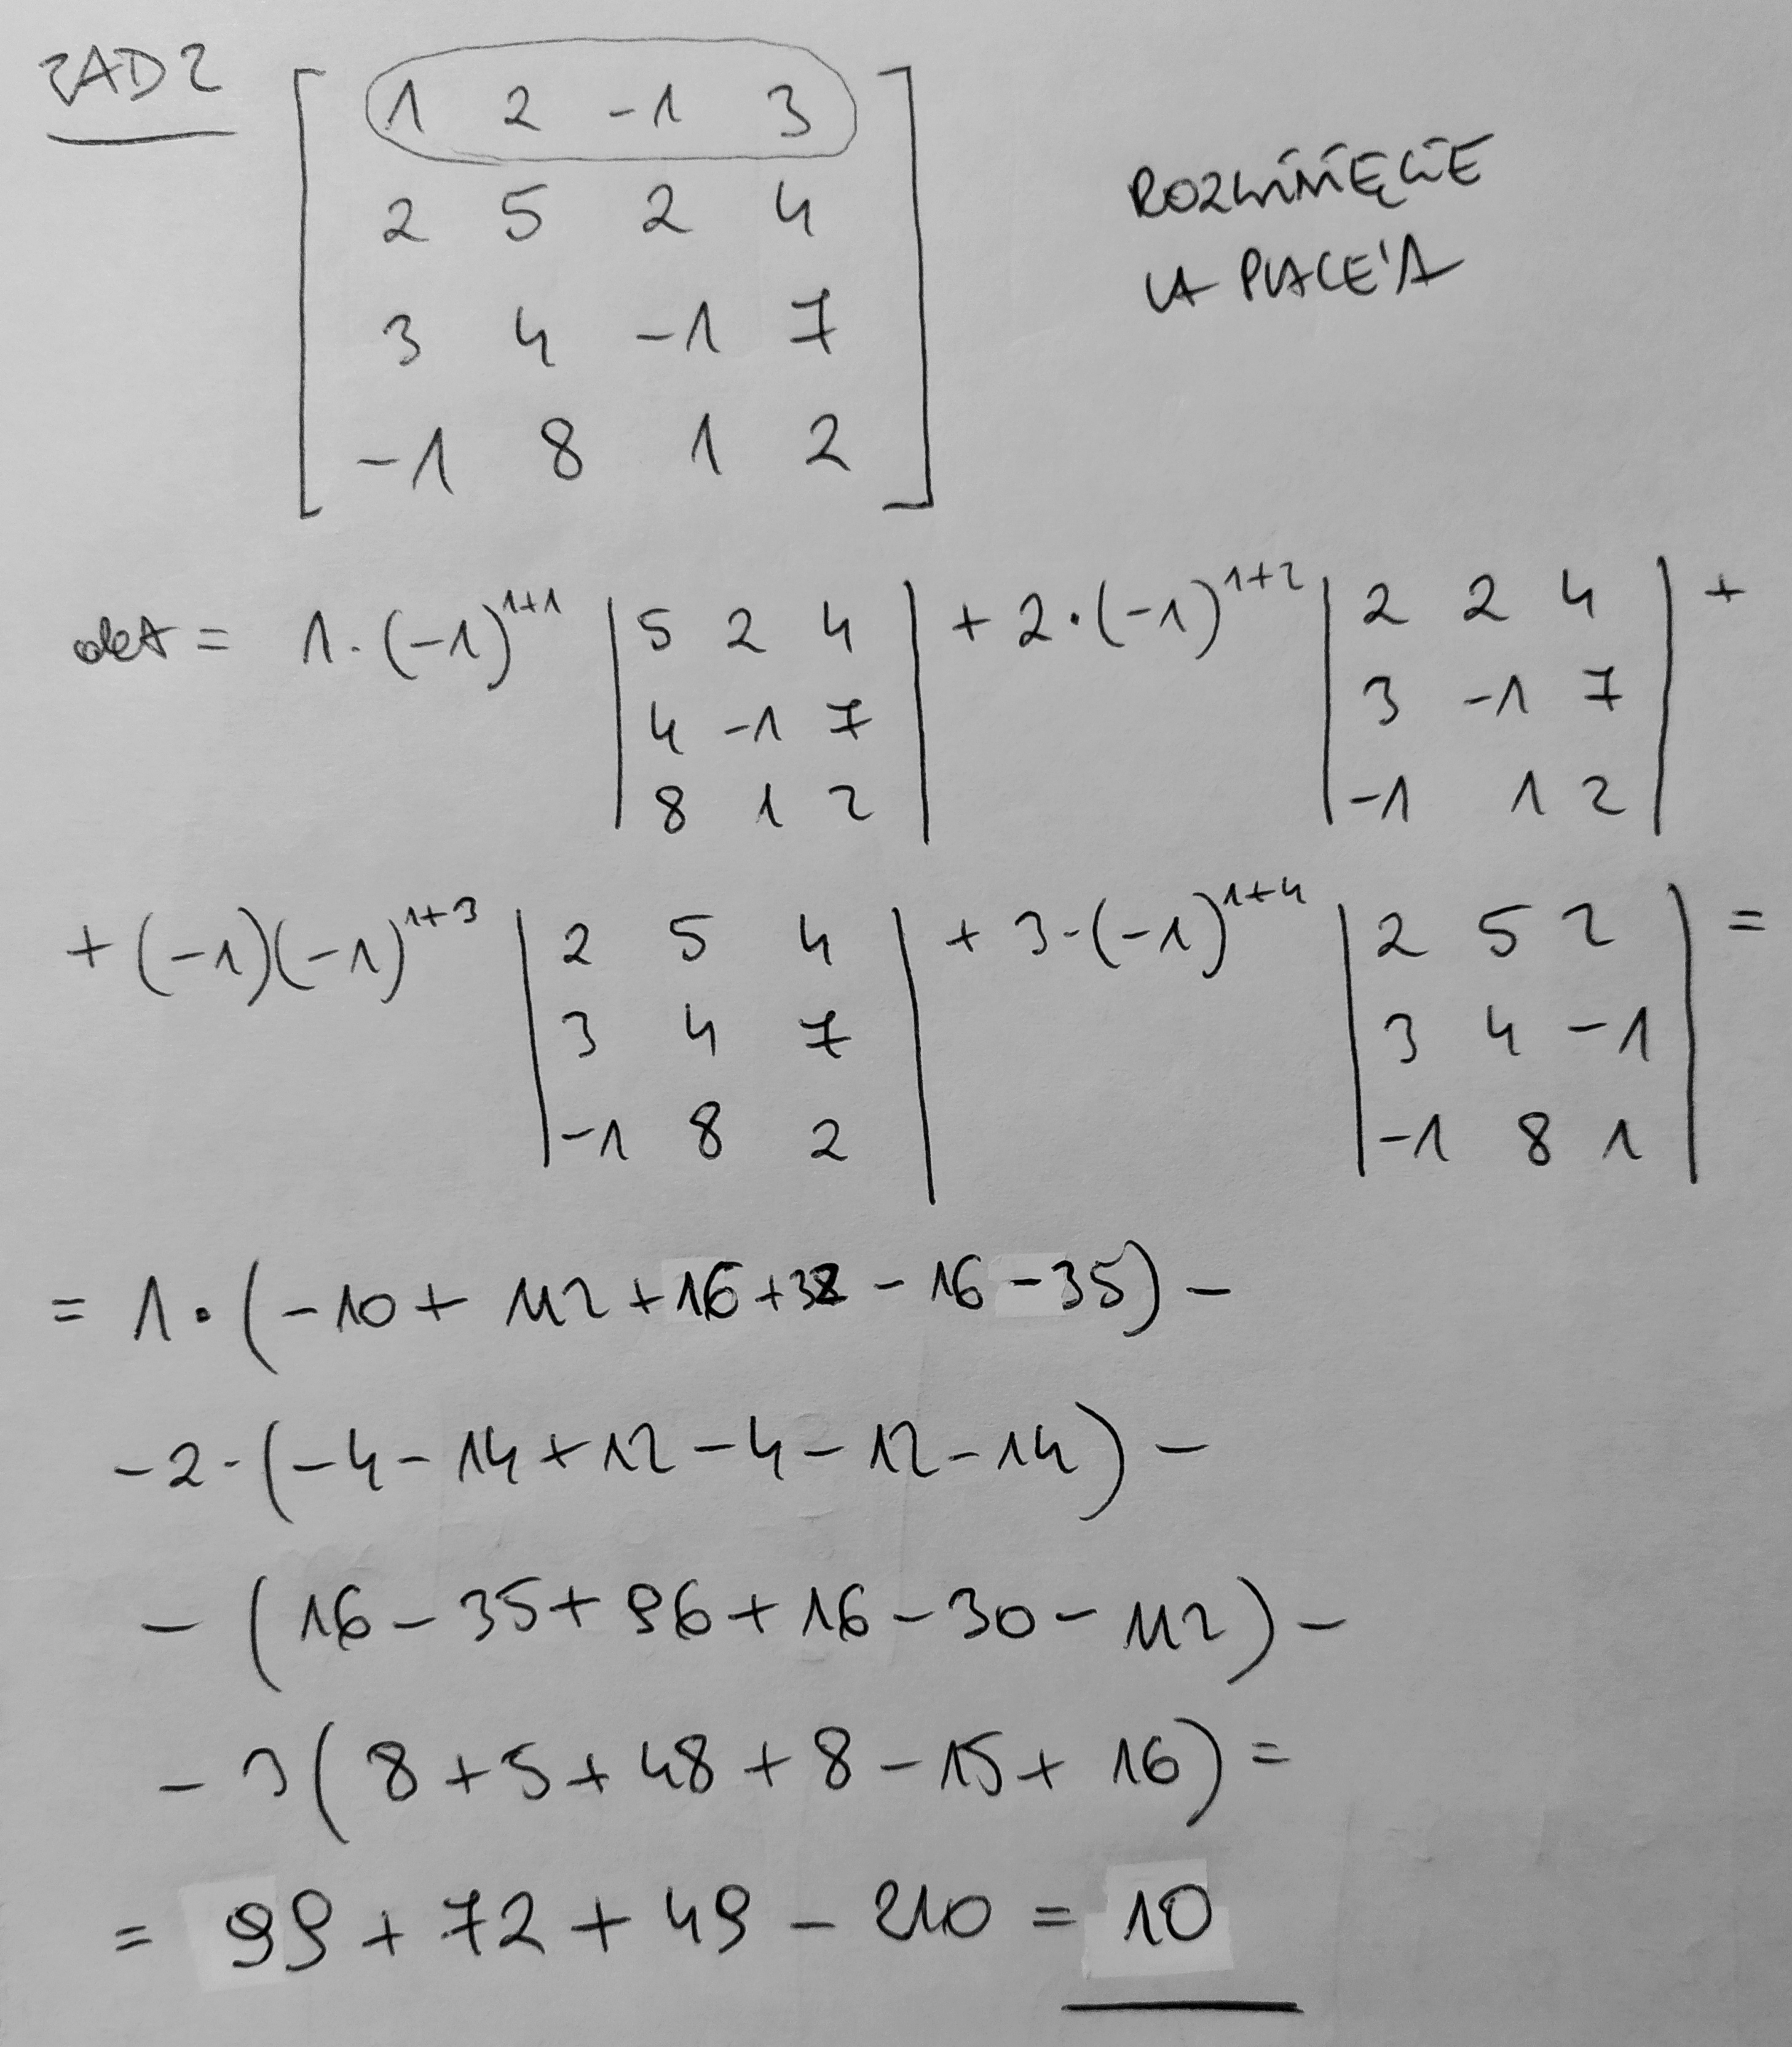 ZAD 2
1 2 -1 3
2 5 2 4
3 4 -1 7
-1 8 1 2
ROZWINIĘCIE
LA PLACE'A
det = 1·(-1)^{1+1} |5 2 4| + 2·(-1)^{1+2} |2 2 4| +
|4 -1 7| |3 -1 7|
|8 1 2| |-1 1 2|
+ (-1)(-1)^{1+3} |2 5 4| + 3·(-1)^{1+4} |2 5 2| =
|3 4 7| |3 4 -1|
|-1 8 2| |-1 8 1|
= 1·(-10 + 112 + 16 + 32 - 16 - 35) -
-2·(-4 - 14 + 12 - 4 - 12 - 14) -
- (16 - 35 + 96 + 16 - 30 - 112) -
- 3(8 + 5 + 48 + 8 - 15 + 16) =
= 99 + 72 + 49 - 210 = 10